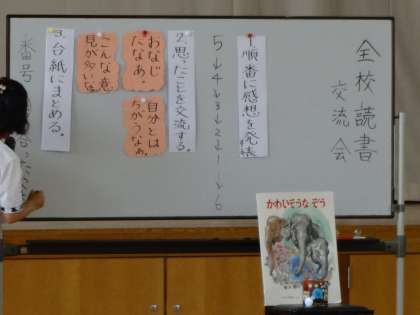 全校読書
交流会
1.順番に感想を発表
5→4→3→2→1→6
2.思ったことを交流する。
おなじだなあ。
自分とはちがうなあ。
こんな意見が多いな
3.台紙にまとめる。
番号
かわいそうなぞう